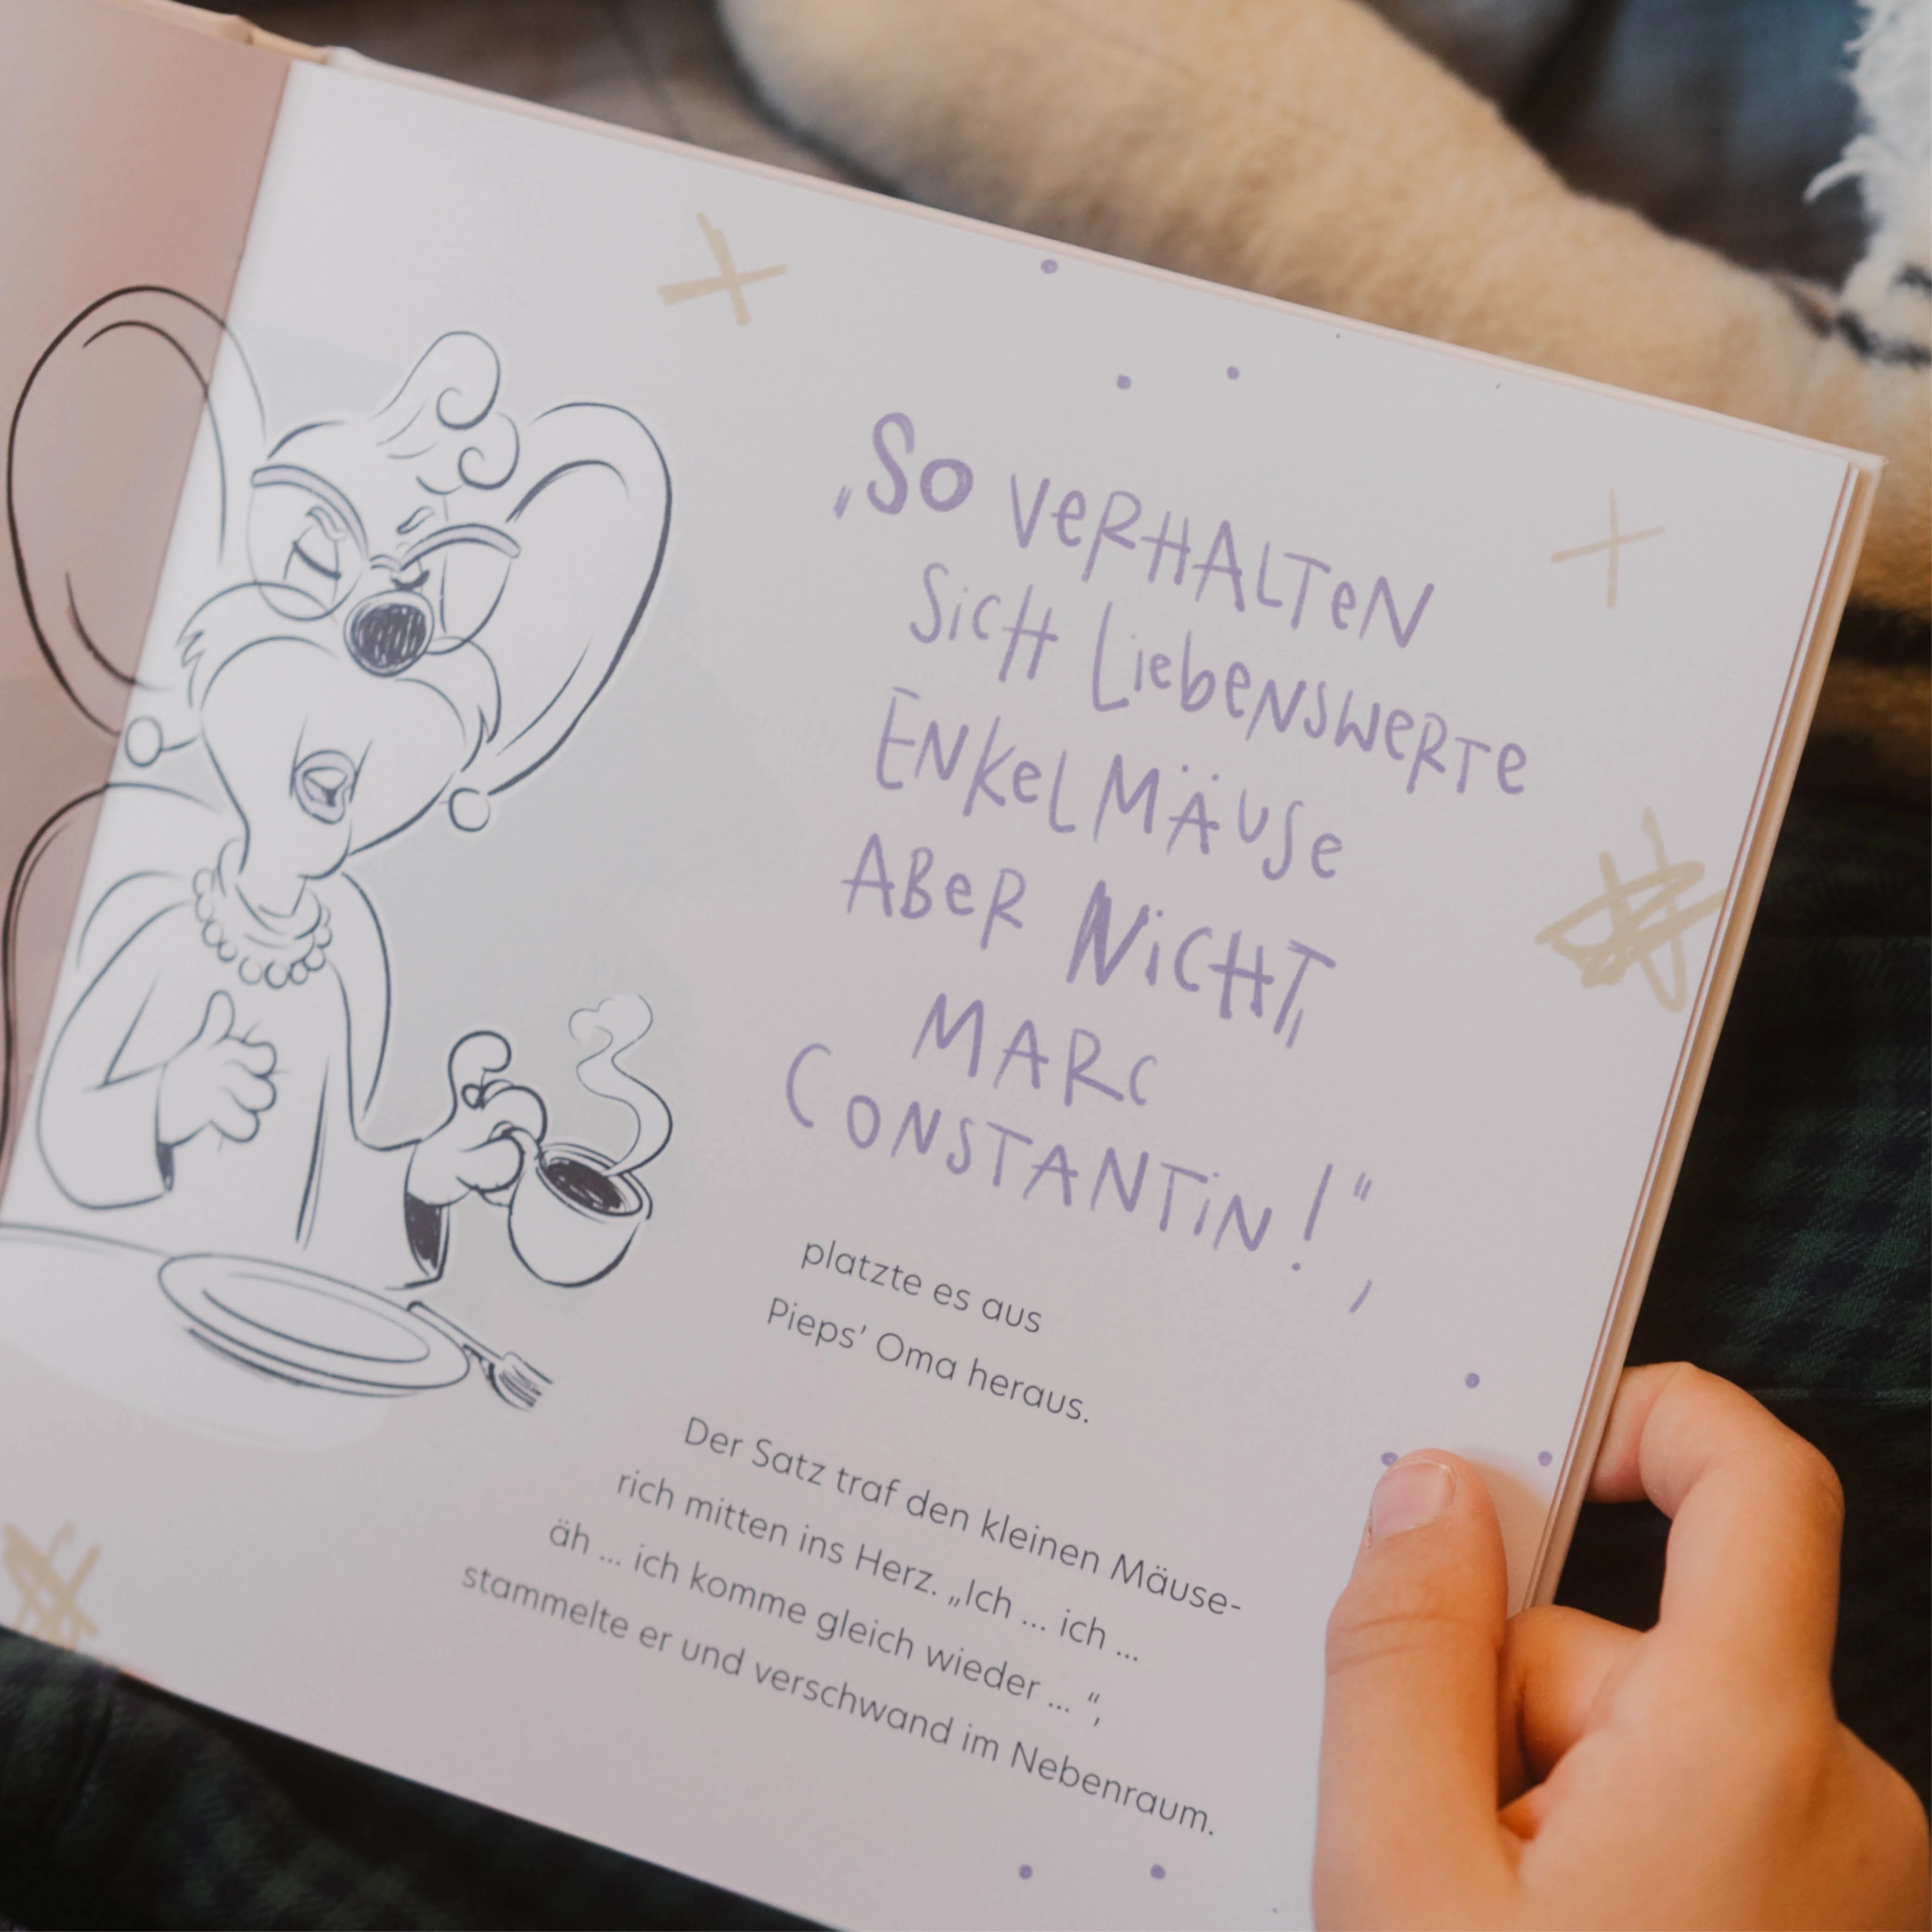 „So verhalten
sich liebenswerte
Enkelmäuse
aber nicht,
Marc
Constantin!“,
platzte es aus
Pieps’ Oma heraus.
Der Satz traf den kleinen Mäuse-
rich mitten ins Herz. „Ich ... ich ...
äh ... ich komme gleich wieder ... “,
stammelte er und verschwand im Nebenraum.